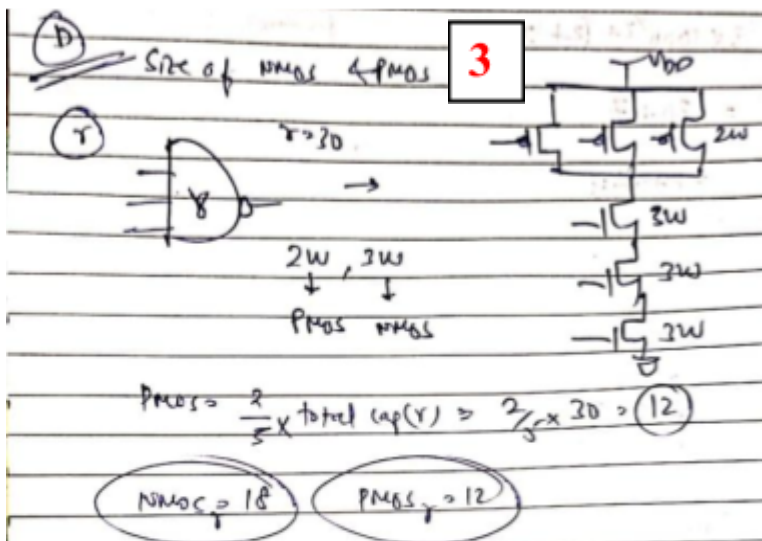 D
Size of NMOS & PMOS
3
VDD
r
r=30
2W
γ
3W
2W, 3W
3W
PMOS NMOS
3W
PMOS = 2/5 × total cap(r) = 2/5 × 30 = 12
NMOSγ = 18 PMOSγ = 12